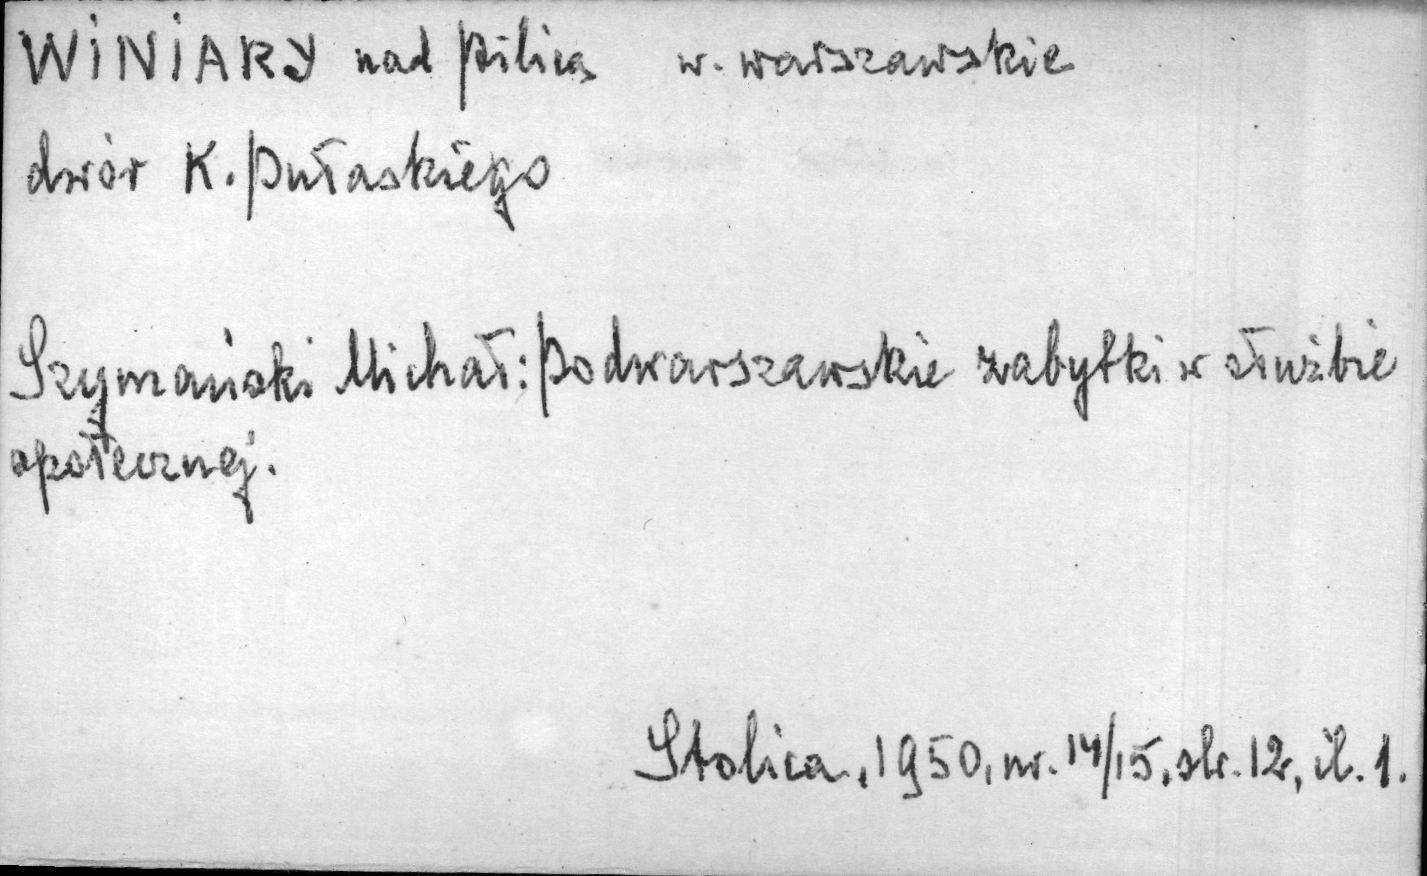 WINIARY nad Pilicą w. warszawskie
dwór K. Pułaskiego
Szymański Michał: Podwarszawskie zabytki w służbie
społecznej.
Stolica, 1950, nr. 14/15, str. 12, il. 1.